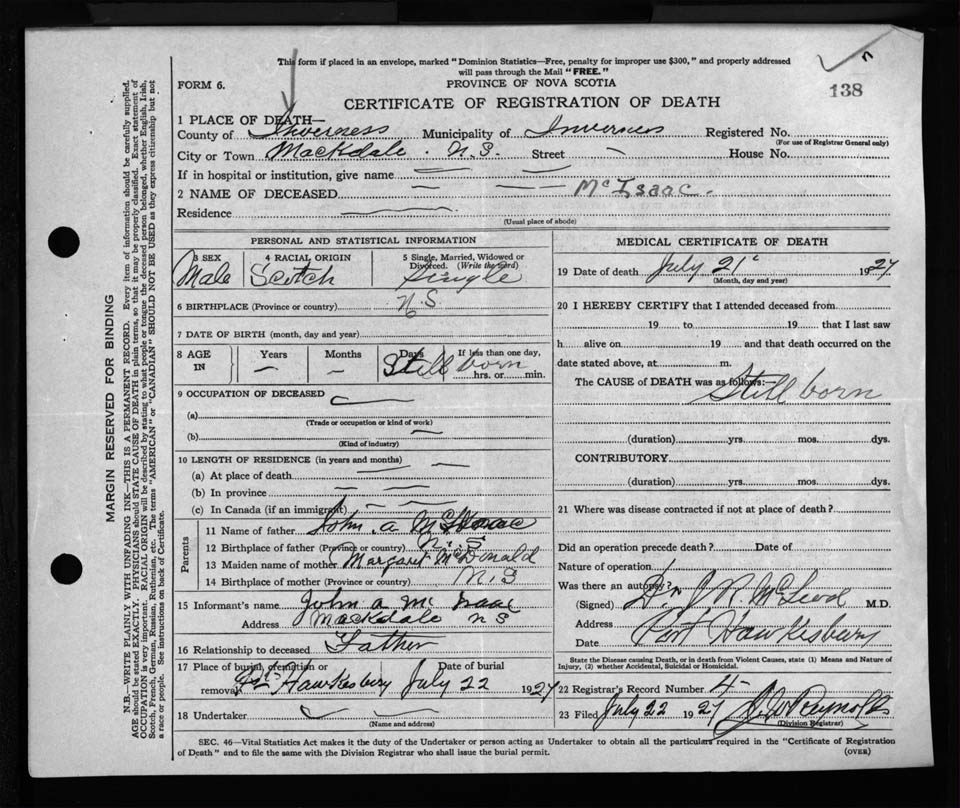 This form if placed in an envelope, marked "Dominion Statistics—Free, penalty for improper use $300," and properly addressed
will pass through the Mail "FREE."
FORM 6.
PROVINCE OF NOVA SCOTIA
138
CERTIFICATE OF REGISTRATION OF DEATH
1 PLACE OF DEATH—
County of Inverness Municipality of Inverness Registered No.
(For use of Registrar General only)
City or Town Mackdale. N.S. Street — House No.
If in hospital or institution, give name —
2 NAME OF DECEASED — — McIsaac.
Residence
(Usual place of abode)
PERSONAL AND STATISTICAL INFORMATION
3 SEX 4 RACIAL ORIGIN 5 Single, Married, Widowed or Divorced. (Write the word)
Male Scotch Single
6 BIRTHPLACE (Province or country) N.S.
7 DATE OF BIRTH (month, day and year)
8 AGE IN Years Months Days If less than one day,
— — Still born hrs. or min.
9 OCCUPATION OF DECEASED
(a)
(Trade or occupation or kind of work)
(b)
(Kind of industry)
10 LENGTH OF RESIDENCE (in years and months)
(a) At place of death
(b) In province
(c) In Canada (if an immigrant)
Parents
11 Name of father John. A McIsaac
12 Birthplace of father (Province or country) N.S
13 Maiden name of mother Margaret McDonald
14 Birthplace of mother (Province or country) N.S
15 Informant's name John A McIsaac
Address Mackdale NS
16 Relationship to deceased Father
17 Place of burial, cremation or removal Pt Hawkesbury Date of burial July 22 1927
18 Undertaker
(Name and address)
MEDICAL CERTIFICATE OF DEATH
19 Date of death July 21 1927
(Month, day and year)
20 I HEREBY CERTIFY that I attended deceased from
19 to 19 that I last saw
h alive on 19 and that death occurred on the
date stated above, at m.
The CAUSE of DEATH was as follows:—
Still born
(duration) yrs. mos. dys.
CONTRIBUTORY
(duration) yrs. mos. dys.
21 Where was disease contracted if not at place of death?
Did an operation precede death? Date of
Nature of operation
Was there an autopsy?
(Signed) Dr J R McLeod M.D.
Address Port Hawkesbury
Date
State the Disease causing Death, or in death from Violent Causes, state (1) Means and Nature of
Injury, (2) whether Accidental, Suicidal or Homicidal.
22 Registrar's Record Number 4
23 Filed July 22 1927 Reynolds
(Division Registrar)
SEC. 46—Vital Statistics Act makes it the duty of the Undertaker or person acting as Undertaker to obtain all the particulars required in the "Certificate of Registration
of Death" and to file the same with the Division Registrar who shall issue the burial permit.
(OVER)
MARGIN RESERVED FOR BINDING
N.B.—WRITE PLAINLY WITH UNFADING INK—THIS IS A PERMANENT RECORD. Every item of information should be carefully supplied.
AGE should be stated EXACTLY. PHYSICIANS should STATE CAUSE OF DEATH in plain terms, so that it may be properly classified. Exact statement of
OCCUPATION is very important. RACIAL ORIGIN will be described by stating to what people or tongue the deceased person belonged, whether English, Irish,
Scotch, French, German, Russian, Ruthenian, etc. The terms "AMERICAN" or "CANADIAN" SHOULD NOT BE USED as they express citizenship but not
a race or people. See instructions on back of Certificate.